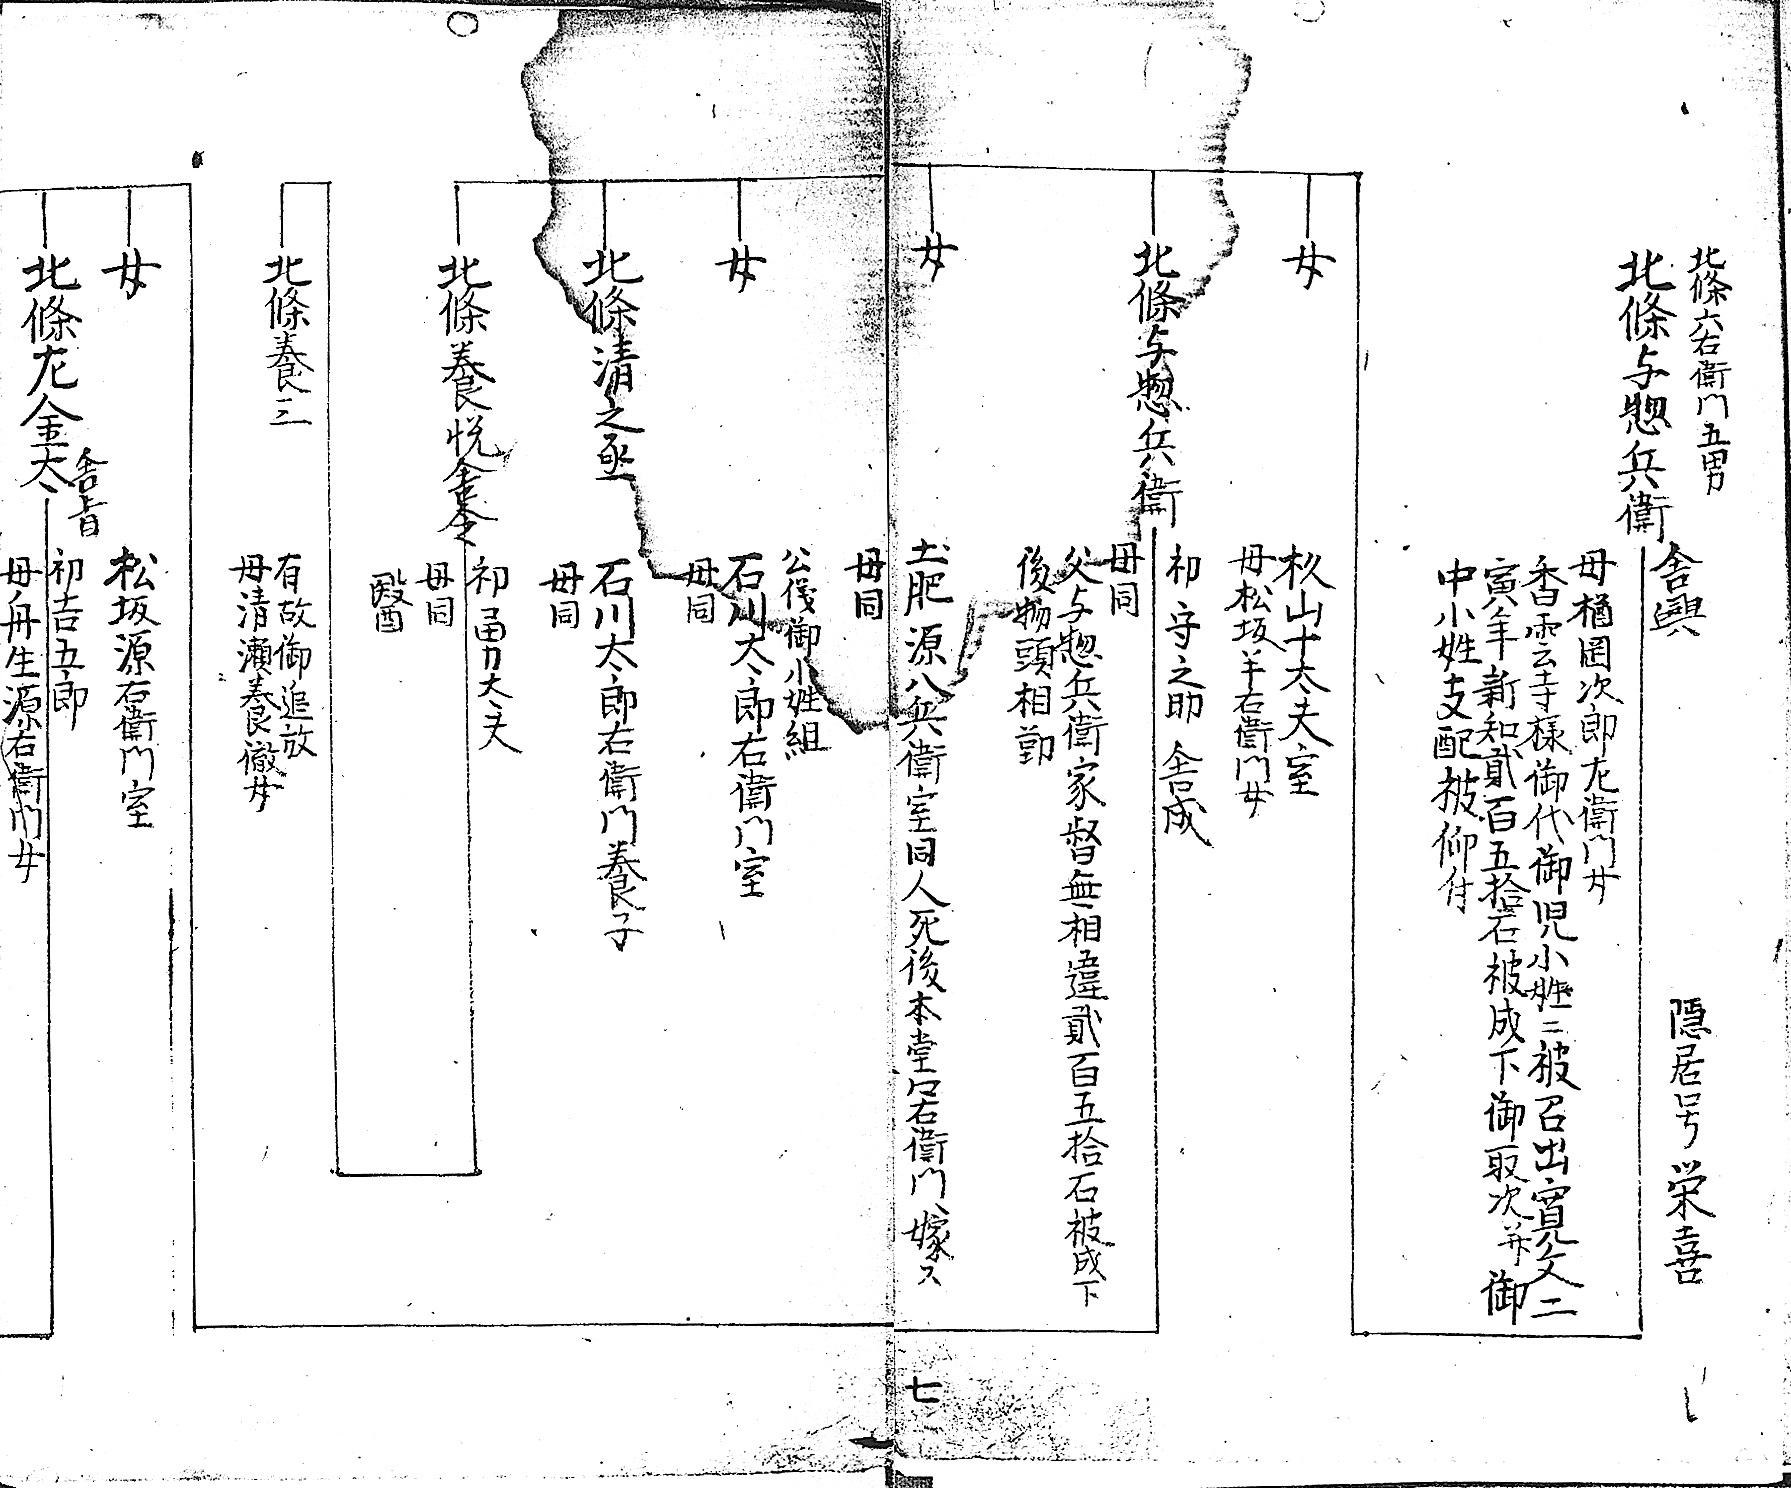 北條六右衛門五男
北條与惣兵衛
舎興
隠居号栄喜
母楢岡次郎左衛門女
香雲寺様御代御児小姓ニ被召出寛文二
寅年新知貳百五拾石被成下御取次并御
中小姓支配被仰付
女
杉山十太夫室
母松坂半右衛門女
北條与惣兵衛
初守之助
舎成
母同
父与惣兵衛家督無相違貳百五拾石被成下
後物頭相勤
女
土肥源八兵衛室同人死後本堂
右衛門へ嫁ス
母同
公儀御小姓組
女
石川太郎右衛門室
母同
北條清之丞
石川太郎右衛門養子
母同
北條養悦
初勇大夫
母同
醫
北條養三
有故御追放
母清瀬養徹女
女
松坂源右衛門室
北條左金太
初吉五郎
母舟生源右衛門女
七